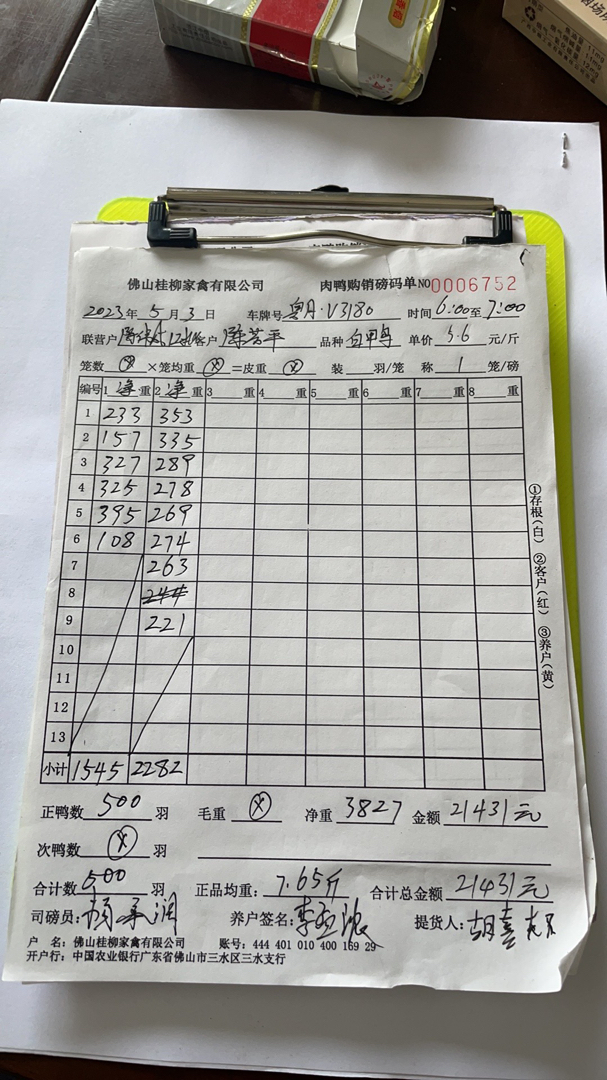 佛山桂柳家禽有限公司 肉鸭购销磅码单 NO 0006752
2023年 5月 3日 车牌号 粤A·V3180 时间 6:00至7:00
联营户 客户 品种 单价 5.6 元/斤
笼数 ⊗ ×笼均重 ⊗ =皮重 ⊗ 装 羽/笼 称 1 笼/磅
编号 1 净 重 2 净 重 3 重 4 重 5 重 6 重 7 重 8 重
1 233 353
2 157 335
3 327 289
4 325 278
5 395 269
6 108 274
7 263
8 244
9 221
10
11
12
13
小计 1545 2282
①存根(白) ②客户(红) ③养户(黄)
正鸭数 500 羽 毛重 ⊗ 净重 3827 金额 21431元
次鸭数 ⊗ 羽
合计数 500 羽 正品均重: 7.65斤 合计总金额 21431元
司磅员: 养户签名: 提货人:
户 名: 佛山桂柳家禽有限公司 账号: 444 401 010 400 169 29
开户行: 中国农业银行广东省佛山市三水区三水支行